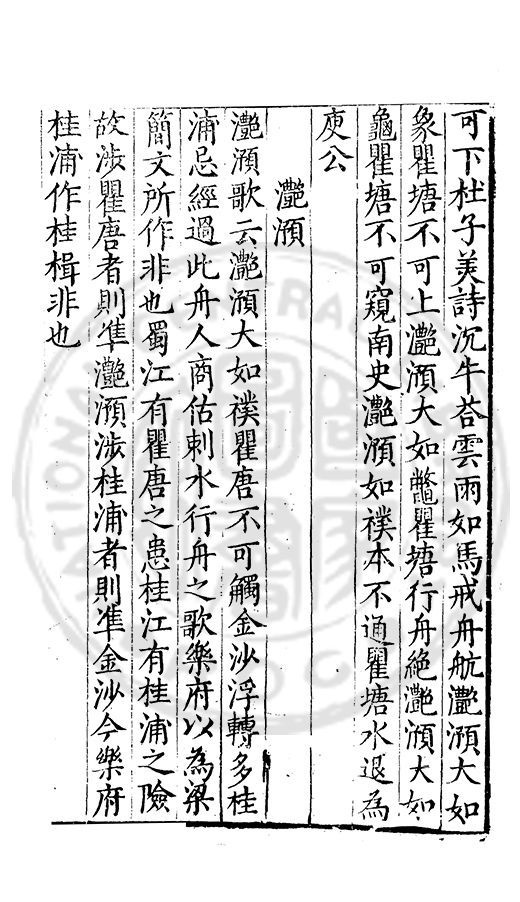 可下杜子美詩沉牛荅雲雨如馬戒舟航灔澦大如
象瞿塘不可上灔澦大如鼈瞿塘行舟絶灔澦大如
龜瞿塘不可窺南史灔澦如襆本不通瞿塘水退為
庾公
灔澦
灔澦歌云灔澦大如襆瞿唐不可觸金沙浮轉多桂
浦忌經過此舟人商估刺水行舟之歌樂府以為梁
簡文所作非也蜀江有瞿唐之患桂江有桂浦之險
故涉瞿唐者則凖灔澦涉桂浦者則凖金沙今樂府
桂浦作桂楫非也